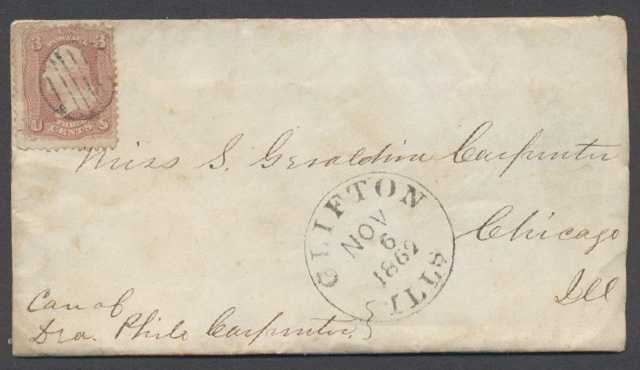 3 3
U S
CENTS
Miss S. Geraldina Carpenter
CLIFTON
NOV
6
1862
ILLS
Chicago
Ill
Care of
Dea. Philo Carpenter.